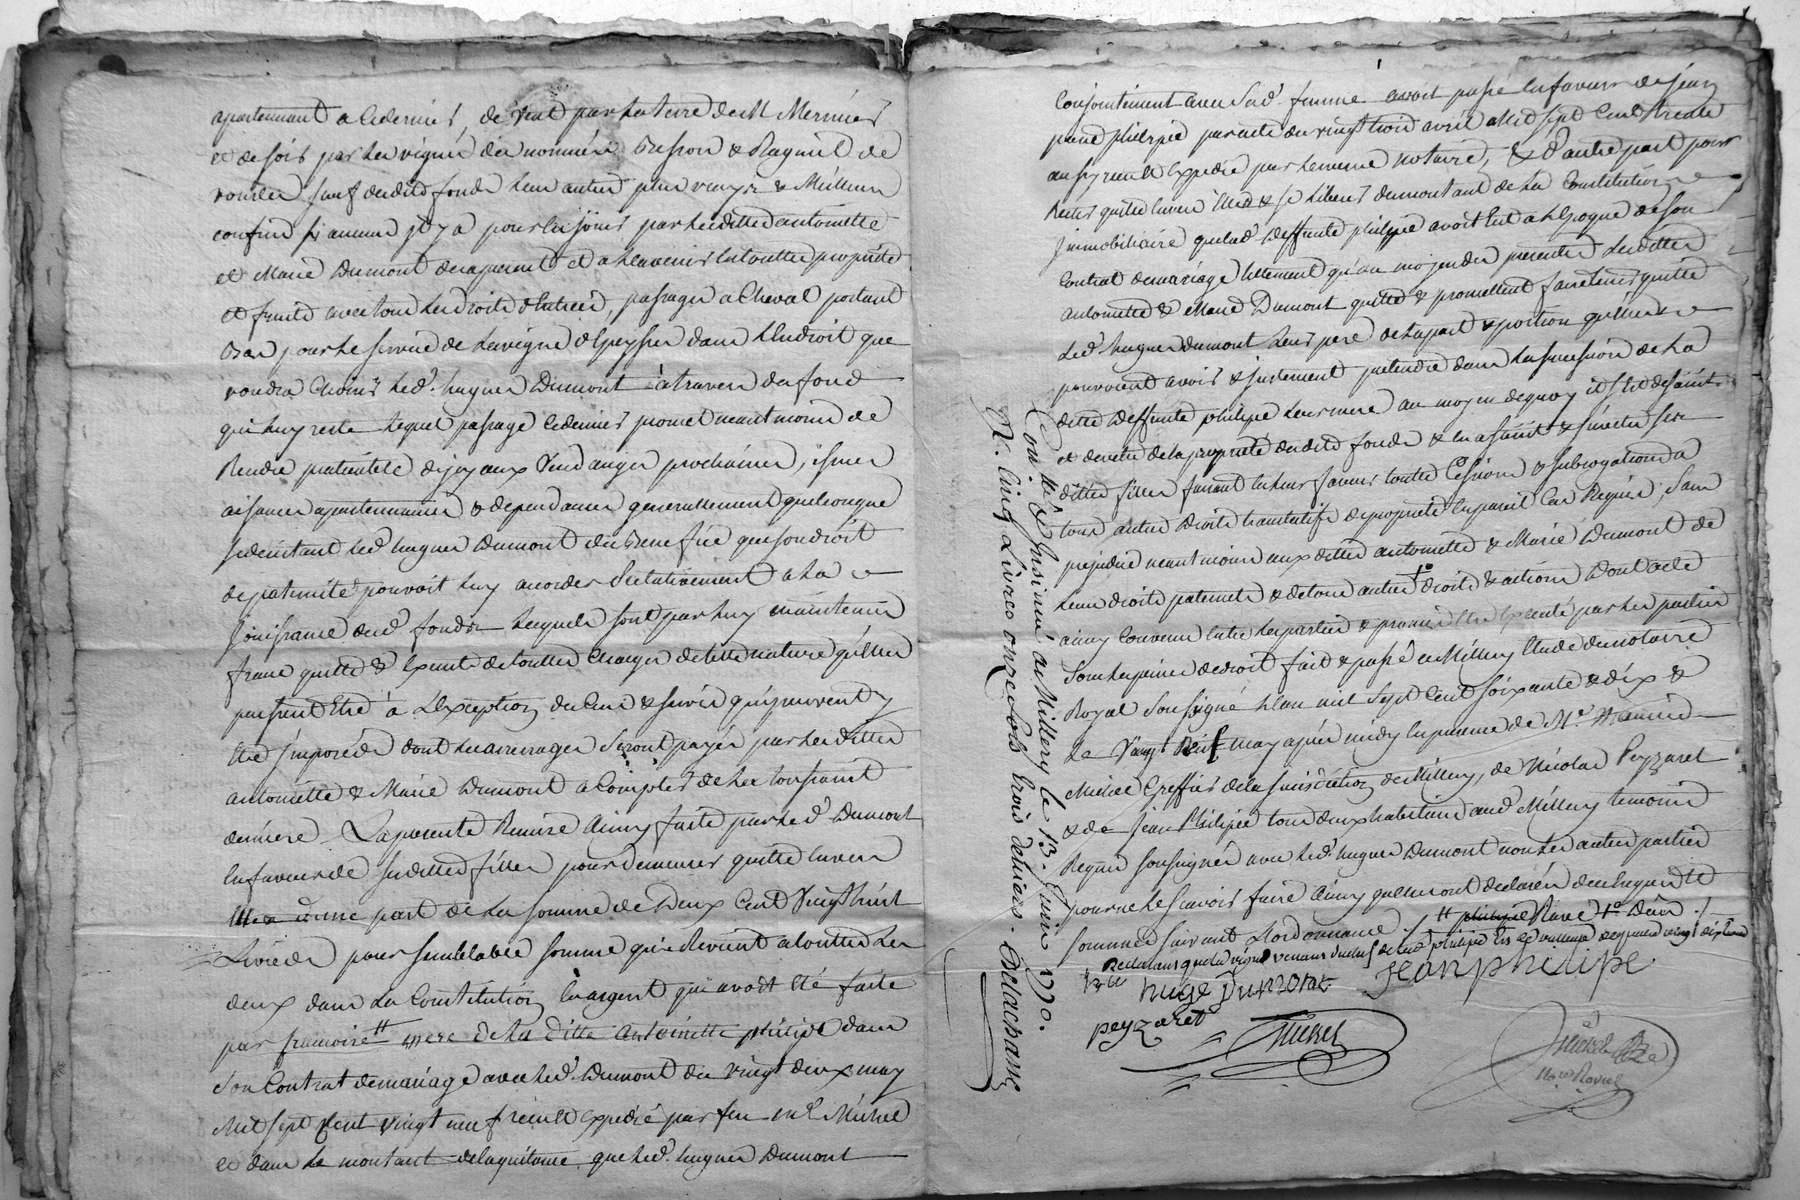 apartenant a ce dernier, de vent par la terre de M Mermier
et de soir par les vignes des nommés Besson & Raguet de
vourles sauf desdits fonds leurs autres plus vrays & meilleurs
confins si aucuns il y a pour en jouir par lesdittes antoinette
et Marie Dumont des a present et a l'avenir en toutte proprieté
et fruits avec tous les droits d'entrées, passages a cheval portant
Bas pour le service de la vigne dans l'Endroit que
voudra choisir led. hugues Dumont a travers du fond
qui luy reste lequel passage ce dernier promet neantmoins de
Rendre praticable d'icy aux vendanges prochaines, issues
aisances apartenances & dependances generallement quelconques
se demettant led. hugues Dumont du Benefice que son droit
de paternité pouvoit luy accorder relativement a la
jouissance desd. fonds lesquels sont par luy maintenus
franc quitte & Exempts de touttes charges de telle nature qu'elles
puissent Etre a L'Exception des cens & servis qui peuvent y
Etre imposés dont les arrerages seront payés par lesdittes
antoinette & Marie Dumont a compter de la toussaint
derniere. La presente Remise ainsy faitte par led. Dumont
en faveur de sesdittes filles pour demeurer quitte envers
Elles d'une part de la somme de deux cent vingt huit
Livres pour semblable somme qui Revient a touttes les
deux dans la Constitution en argent qui avoit Eté faitte
par francoise # mere de la ditte antoinette philipe dans
son Contrat de mariage avec led. Dumont du vingt deux may
Mil sept Cent vingt neuf receu & Expedié par feu me Michel
et dans le montant de la quittance que led. hugues Dumont
Conjointement avec sad. femme avoit passé en faveur de jean
philipe par acte du vingt trois avril Mil sept Cent trente
aussy receu & Expedié par le meme notaire, & d'autre part pour
Rester quitte envers Elles & se liberer du montant de la Constitution
Immobiliaire que lad. deffunte philipe avoit Eut a l'Epoque de son
Contrat de mariage tellement qu'au moyen des presentes lesdittes
antoinette & Marie Dumont quitte & promettent faire tenir quitte
led. hugues Dumont leur pere de la part & portion qu'elles
pouvoient avoir & justement pretendre dans la succession de la
ditte deffunte philipe leur mere au moyen de quoy il s'est desaisit
et devetu de la proprieté desdits fonds & en a saisit & investu ses
dittes filles faisant en leur faveur toutte Cession & subrogation &
tous autres droits translatifs de proprieté en pareil Cas Requis; sans
prejudice neantmoins auxdittes antoinette & Marie Dumont de
leurs droits paternels & de tous autres droits & actions Dont acte
ainsy Convenu Entre les parties & promis Etre Executé par les parties
sous les peines de droit fait & passé a Millery Etude du notaire
Royal soussigné L'an mil sept Cent soixante & dix &
le vingt neuf may après midy en presence de Me
Michel Greffier de la Jurisdiction de Millery, de Nicolas Peyzaret
& de jean Philipe tous deux habitans aud. Millery temoins
Requis soussignés avec led. hugues Dumont non les autres parties
pour ne le scavoir faire ainsy qu'elles ont declaré de ce Enquis &
sommés suivant L'ordonnance
huge Dumont Jean philipe
peyzaret
Michel
Michel
No.re Royal
Con.lé & Insinué a Millery le 13. Juin 1770.
R. Cinq Livres onze sols trois deniers. Delachasse